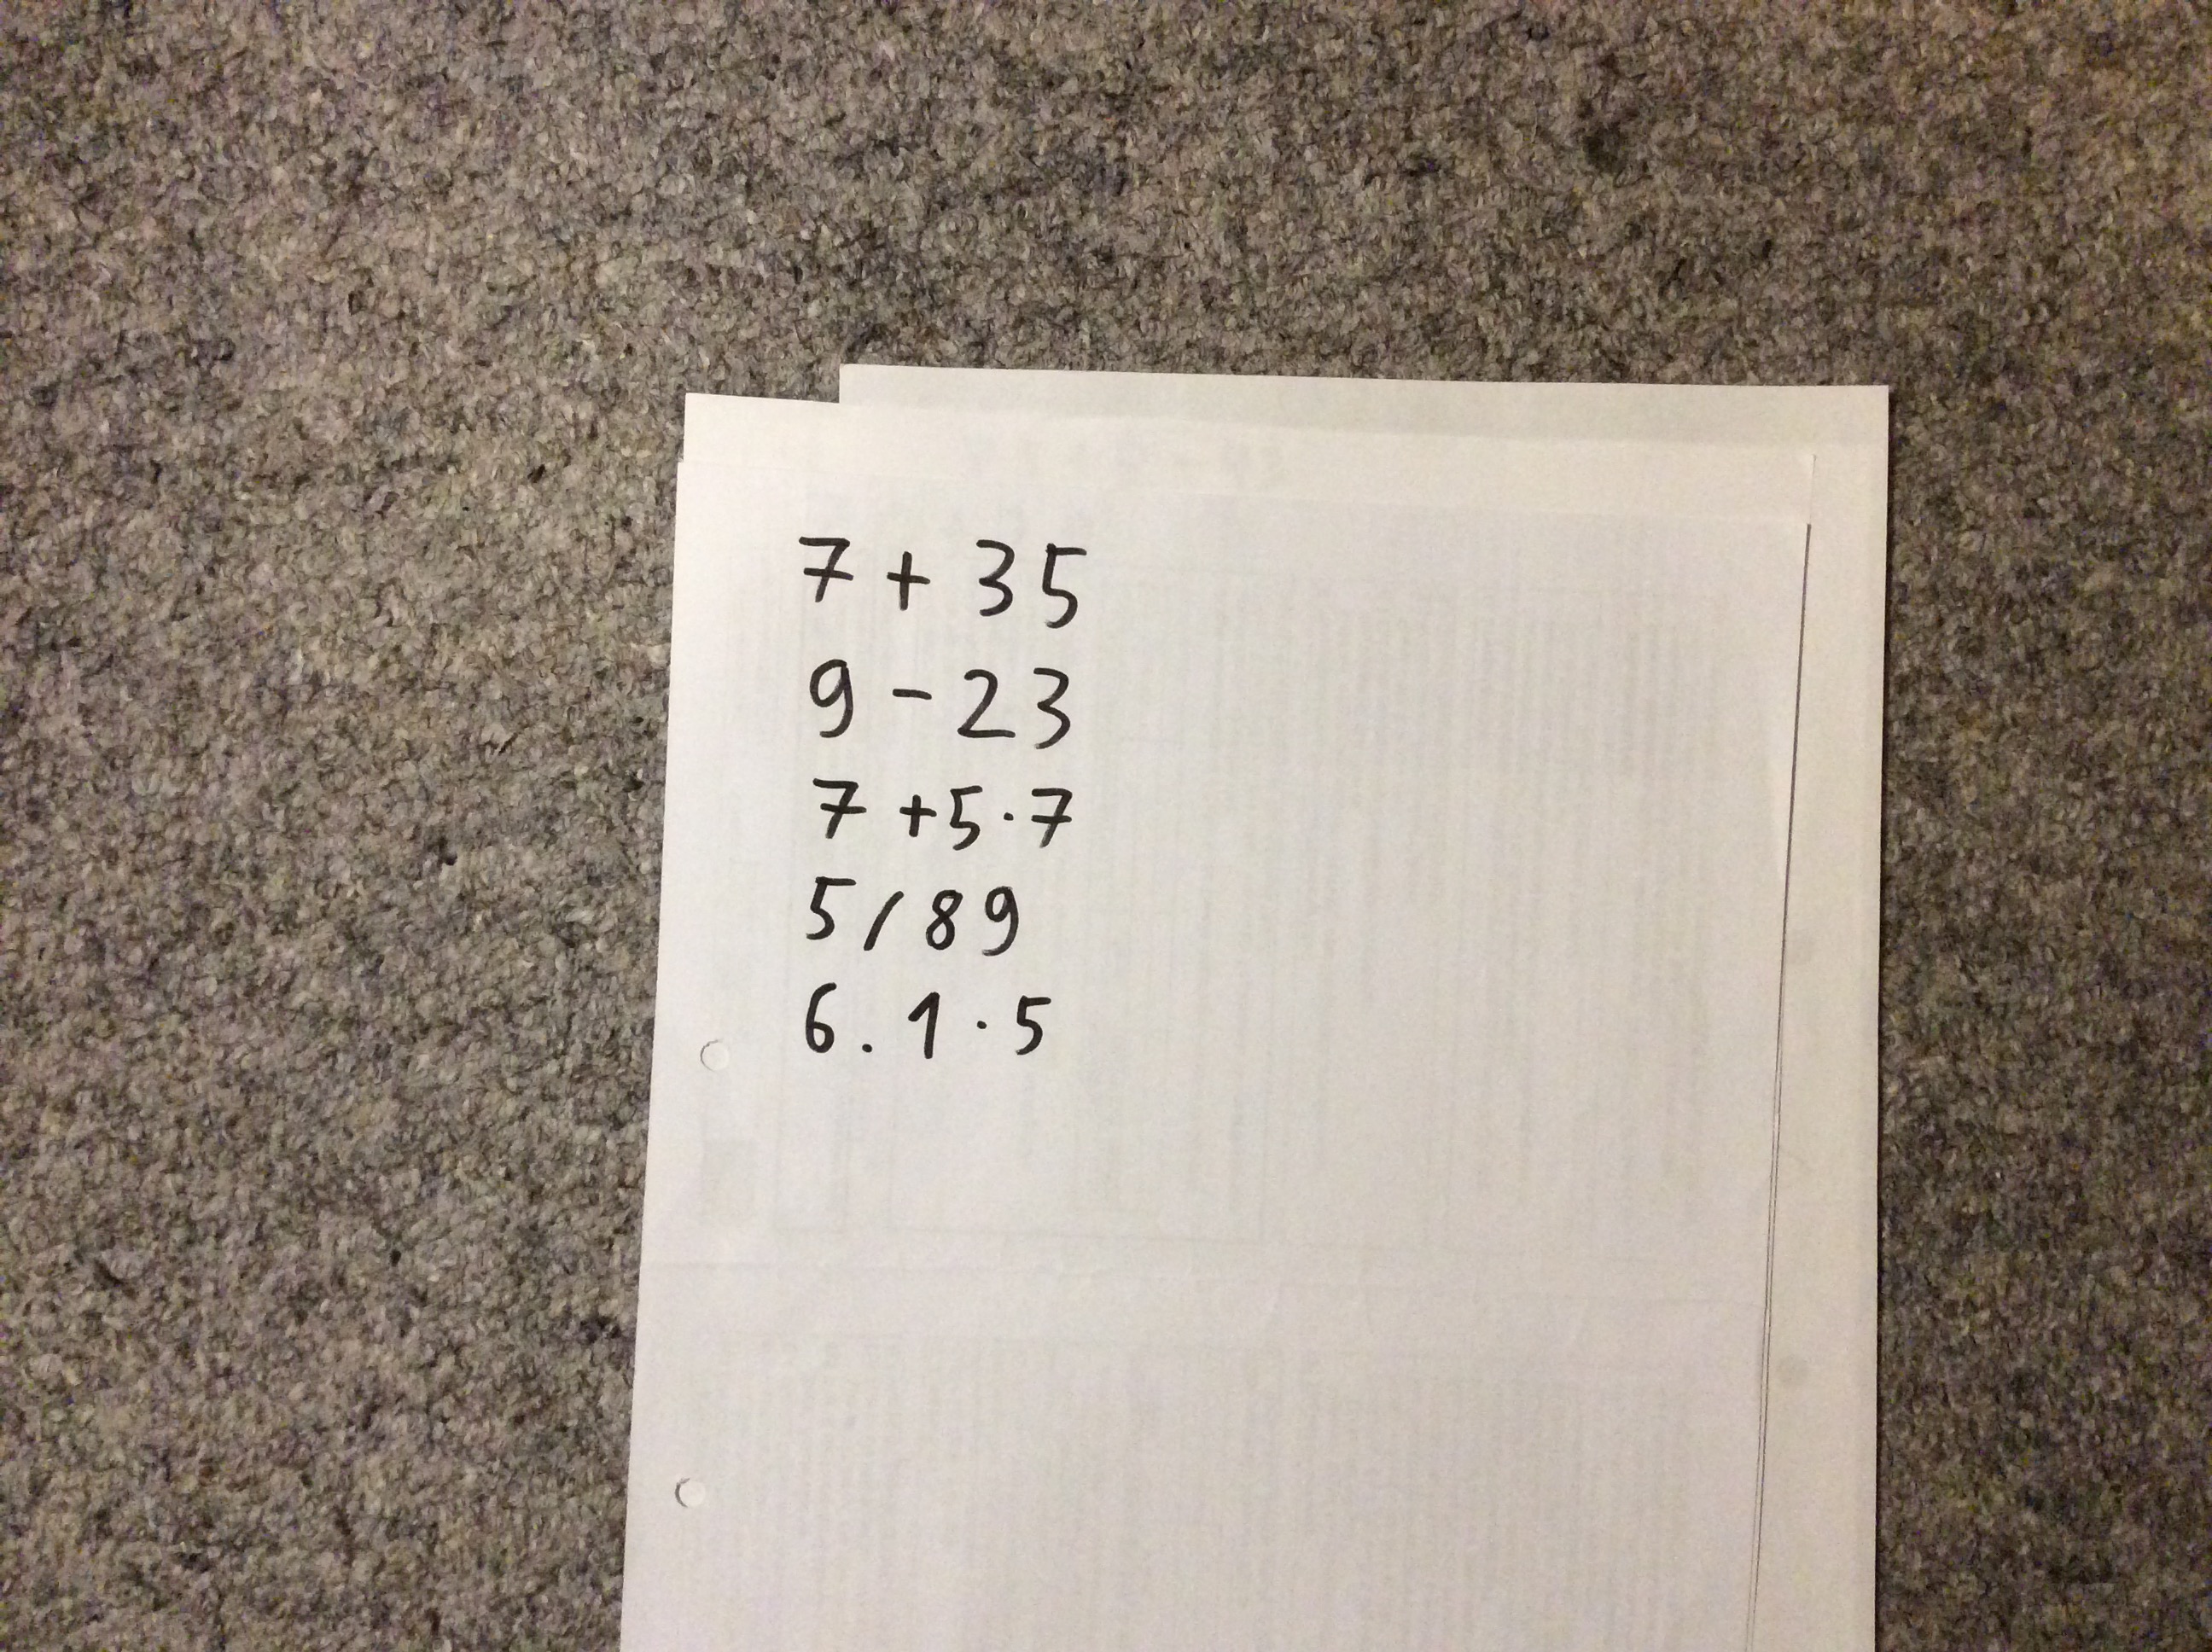 7 + 35
9 - 23
7 + 5 · 7
5 / 89
6 . 1 · 5